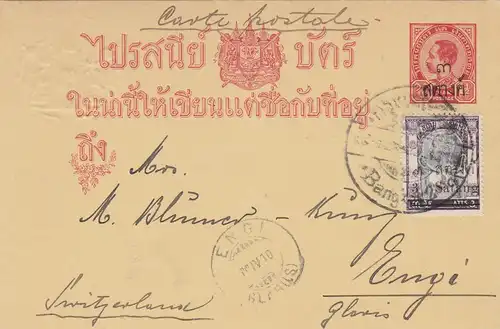 Carte postale.
ไปรสนีย์ บัตร์
ในน่านี้ให้เขียนแต่ชื่อกับที่อยู่
ถึง
๓
สตางค์
Satang
Mrs.
M. Blumer-
ENGI
Engi
Switzerland
Glaris